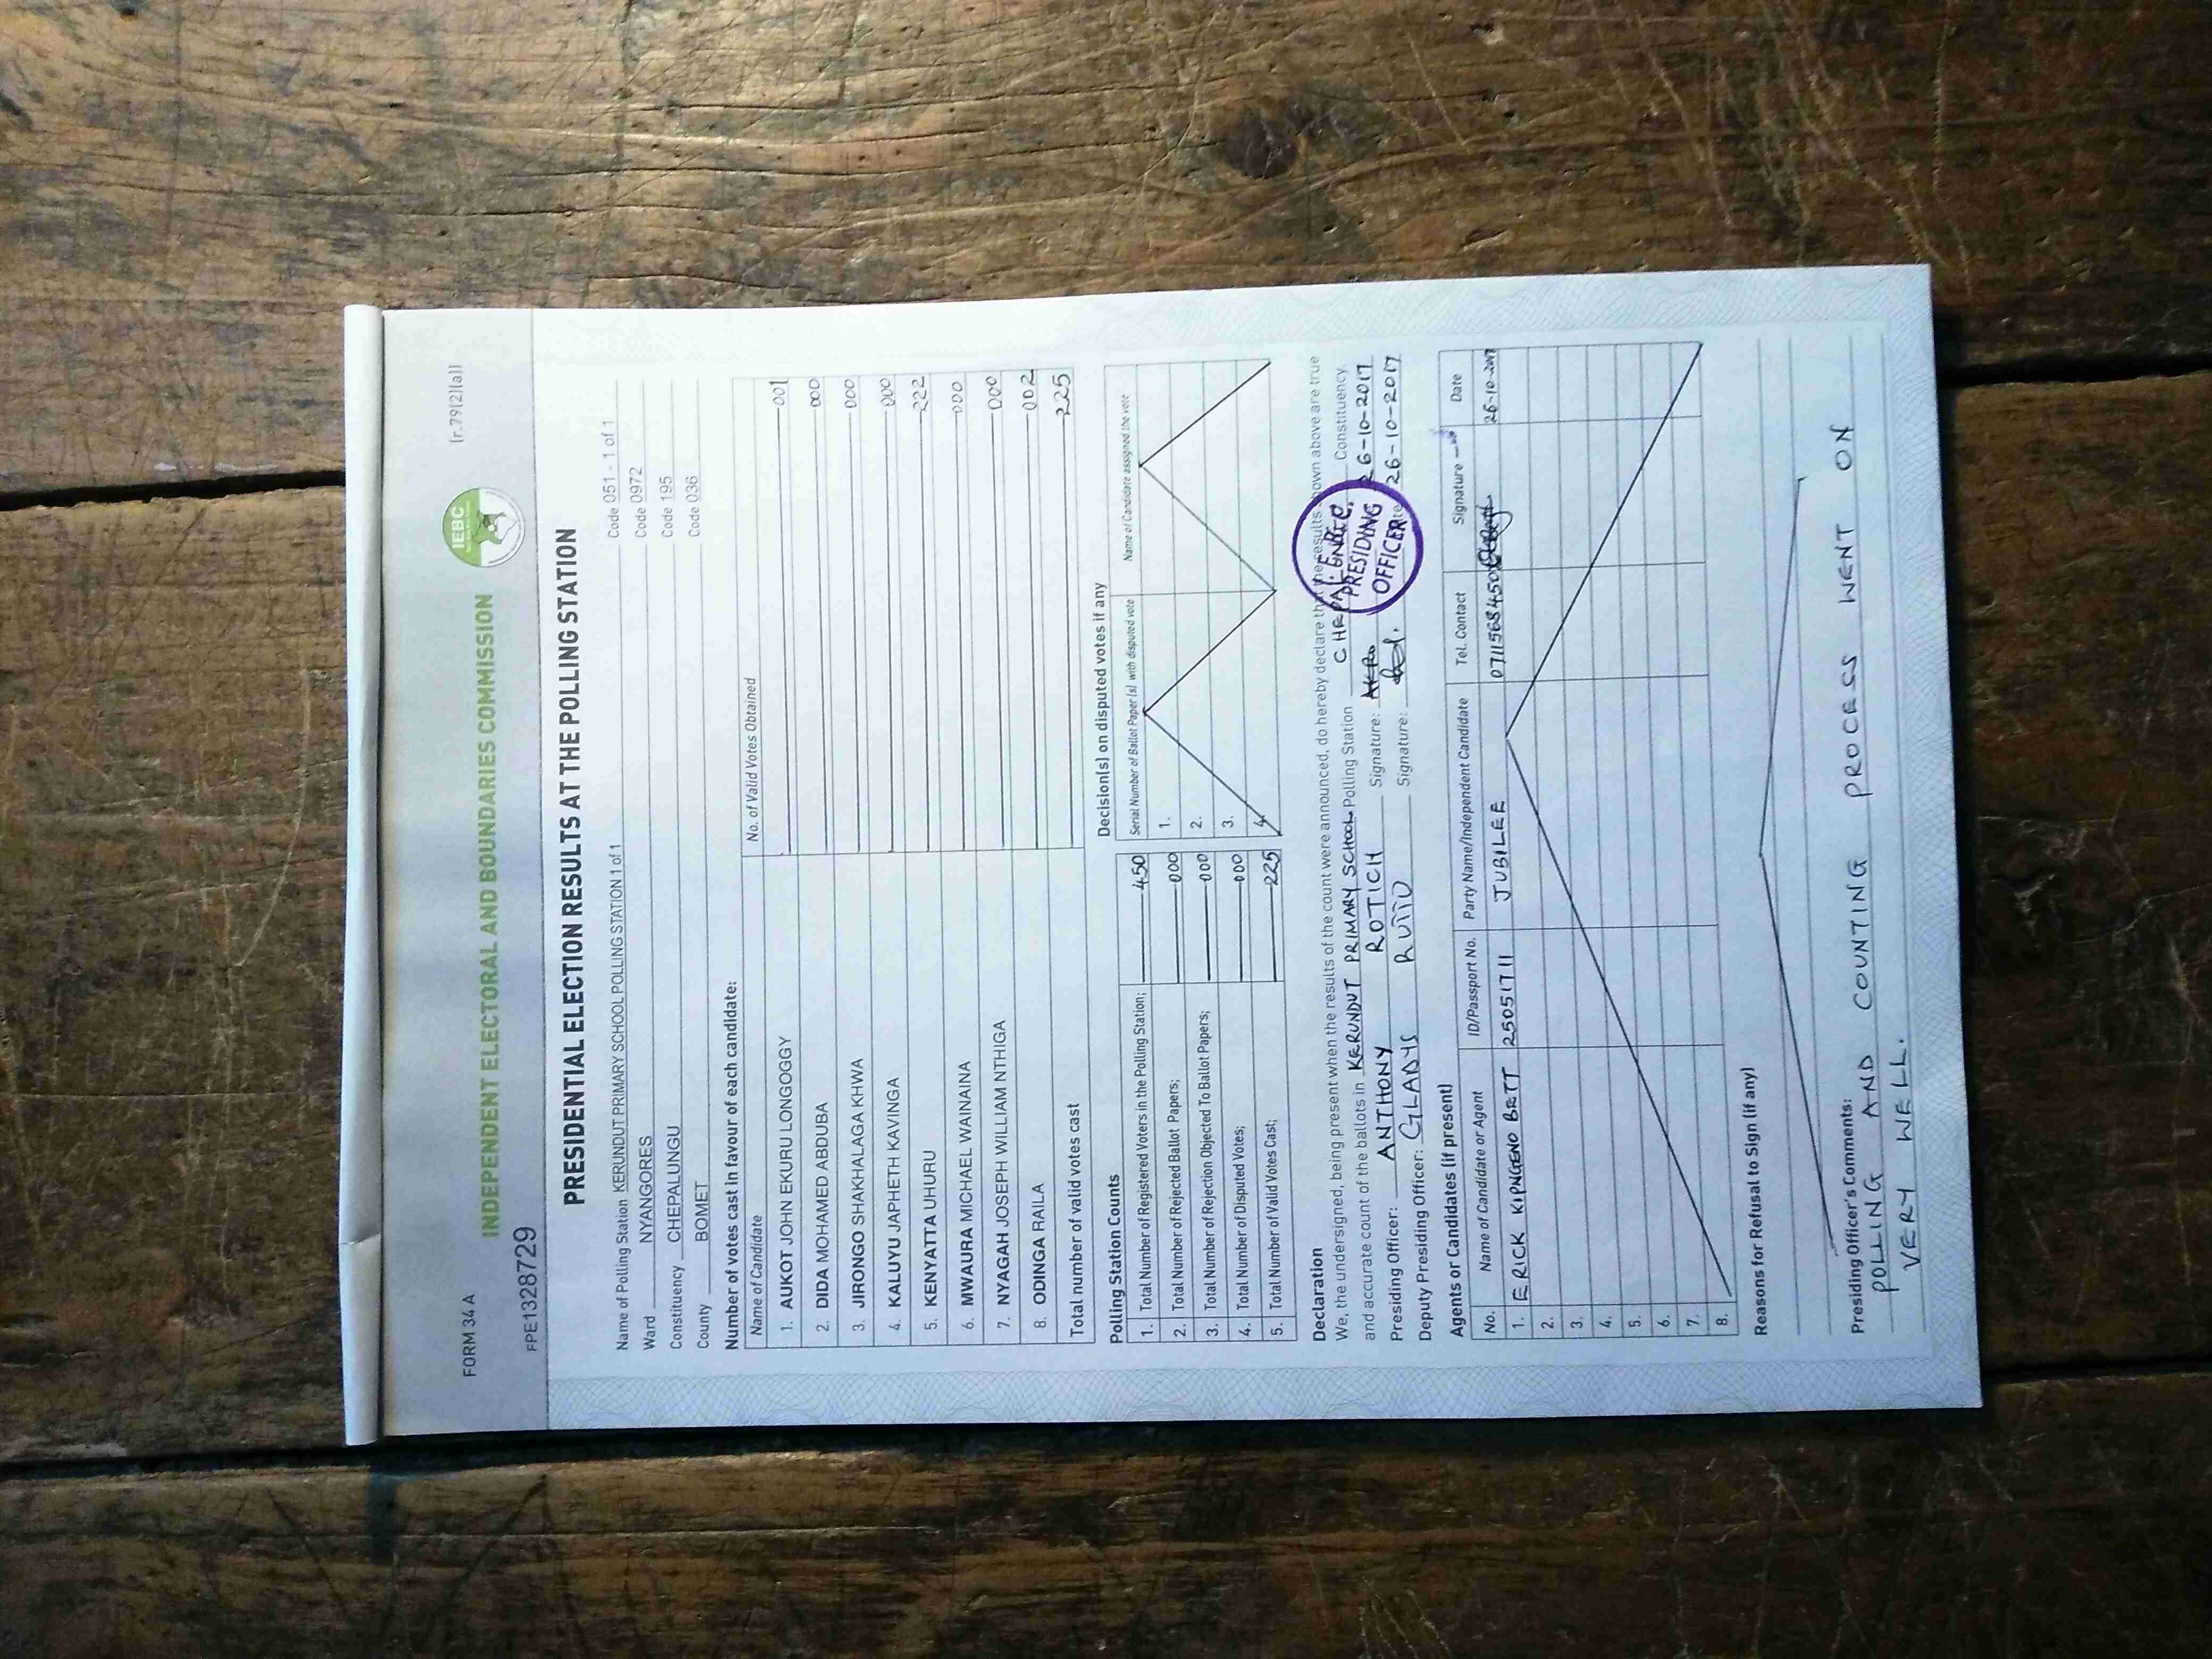 FORM 34 A
(r.79(2)(a))
INDEPENDENT ELECTORAL AND BOUNDARIES COMMISSION
IEBC
FPE1328729
PRESIDENTIAL ELECTION RESULTS AT THE POLLING STATION
Name of Polling Station KERUNDUT PRIMARY SCHOOL POLLING STATION 1 of 1 Code 051 - 1 of 1
Ward NYANGORES Code 0972
Constituency CHEPALUNGU Code 195
County BOMET Code 036
Number of votes cast in favour of each candidate:
Name of Candidate No. of Valid Votes Obtained
1. AUKOT JOHN EKURU LONGOGGY 001
2. DIDA MOHAMED ABDUBA 000
3. JIRONGO SHAKHALAGA KHWA 000
4. KALUYU JAPHETH KAVINGA 000
5. KENYATTA UHURU 222
6. MWAURA MICHAEL WAINAINA 000
7. NYAGAH JOSEPH WILLIAM NTHIGA 000
8. ODINGA RAILA 002
Total number of valid votes cast 225
Polling Station Counts
1. Total Number of Registered Voters in the Polling Station; 450
2. Total Number of Rejected Ballot Papers; 000
3. Total Number of Rejection Objected To Ballot Papers; 000
4. Total Number of Disputed Votes; 000
5. Total Number of Valid Votes Cast; 225
Decision(s) on disputed votes if any
Serial Number of Ballot Paper (s) with disputed vote Name of Candidate assigned the vote
1.
2.
3.
4.
Declaration
We, the undersigned, being present when the results of the count were announced, do hereby declare that the results shown above are true
and accurate count of the ballots in KERUNDUT PRIMARY SCHOOL Polling Station Constituency.
Presiding Officer: ANTHONY ROTICH Signature: 26-10-2017
Deputy Presiding Officer: GLADYS RUTTO Signature: 26-10-2017
I.E.B.C.
PRESIDING
OFFICER
Agents or Candidates (if present)
No. Name of Candidate or Agent ID/Passport No. Party Name/Independent Candidate Tel. Contact Signature Date
1. ERICK KIPNGENO BETT 25051711 JUBILEE 0711568450 26-10-2017
2.
3.
4.
5.
6.
7.
8.
Reasons for Refusal to Sign (if any)
Presiding Officer's Comments:
POLLING AND COUNTING PROCESS WENT ON
VERY WELL.